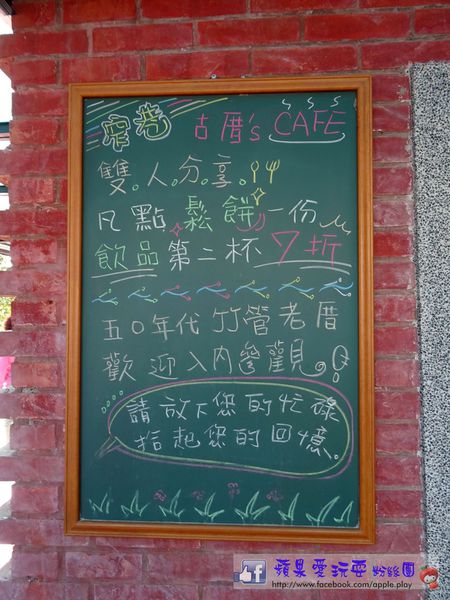 窄巷 古厝's CAFE
雙。人。分。享。
凡點鬆餅一份
飲品第二杯7折
五〇年代竹管老厝
歡迎入內參觀。
請放下您的忙碌
拾起您的回憶。
蘋果愛玩耍粉絲團
http://www.facebook.com/apple.play